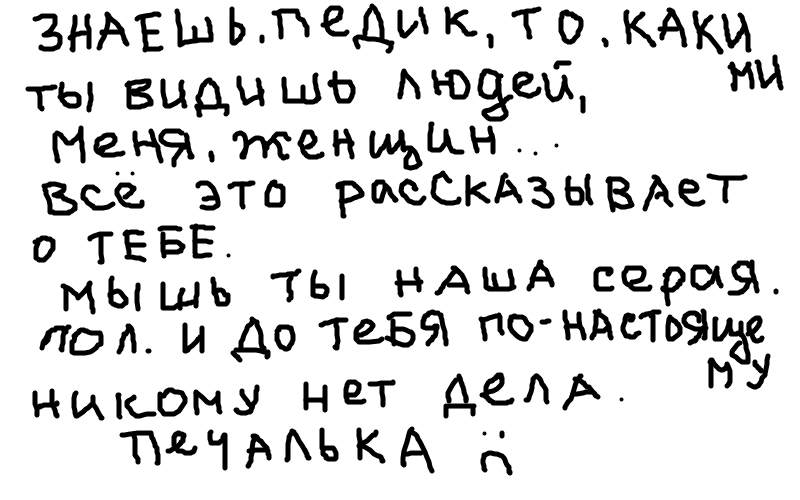 ЗНАЕШЬ, ПЕДИК, ТО, КАКИМИ
ТЫ ВИДИШЬ ЛЮДЕЙ,
МЕНЯ, ЖЕНЩИН...
ВСЁ ЭТО РАССКАЗЫВАЕТ
О ТЕБЕ.
МЫШЬ ТЫ НАША СЕРАЯ.
ЛОЛ. И ДО ТЕБЯ ПО-НАСТОЯЩЕМУ
НИКОМУ НЕТ ДЕЛА.
ПЕЧАЛЬКА :(